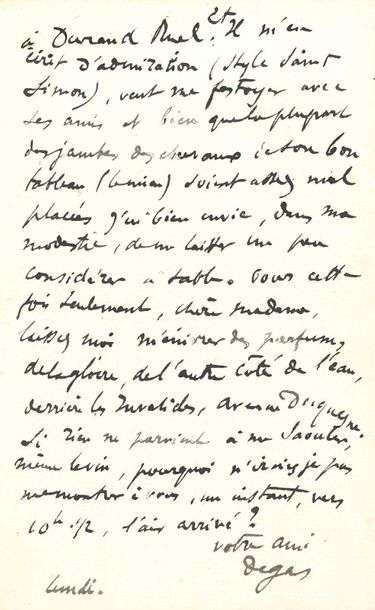 à Durand Ruel. Et Il m'en
écrit d'admiration (style Saint
Simon), veut me festoyer avec
ses amis et bien que la plupart
des jambes des chevaux de son bon
tableau (le mien) soient assez mal
placées j'ai bien envie, dans ma
modestie, de me laisser un peu
considérer à table. Pour cette
fois seulement, chère madame,
laissez moi m'enivrer des parfums
de la gloire, de l'autre côté de l'eau,
derrière les Invalides, avenue Duquesne.
Si rien ne parvient à me saouler,
même le vin, pourquoi n'irais je pas
me montrer à vous, un instant, vers
10h 1/2, l'air arrivé?
votre ami
Degas
lundi.